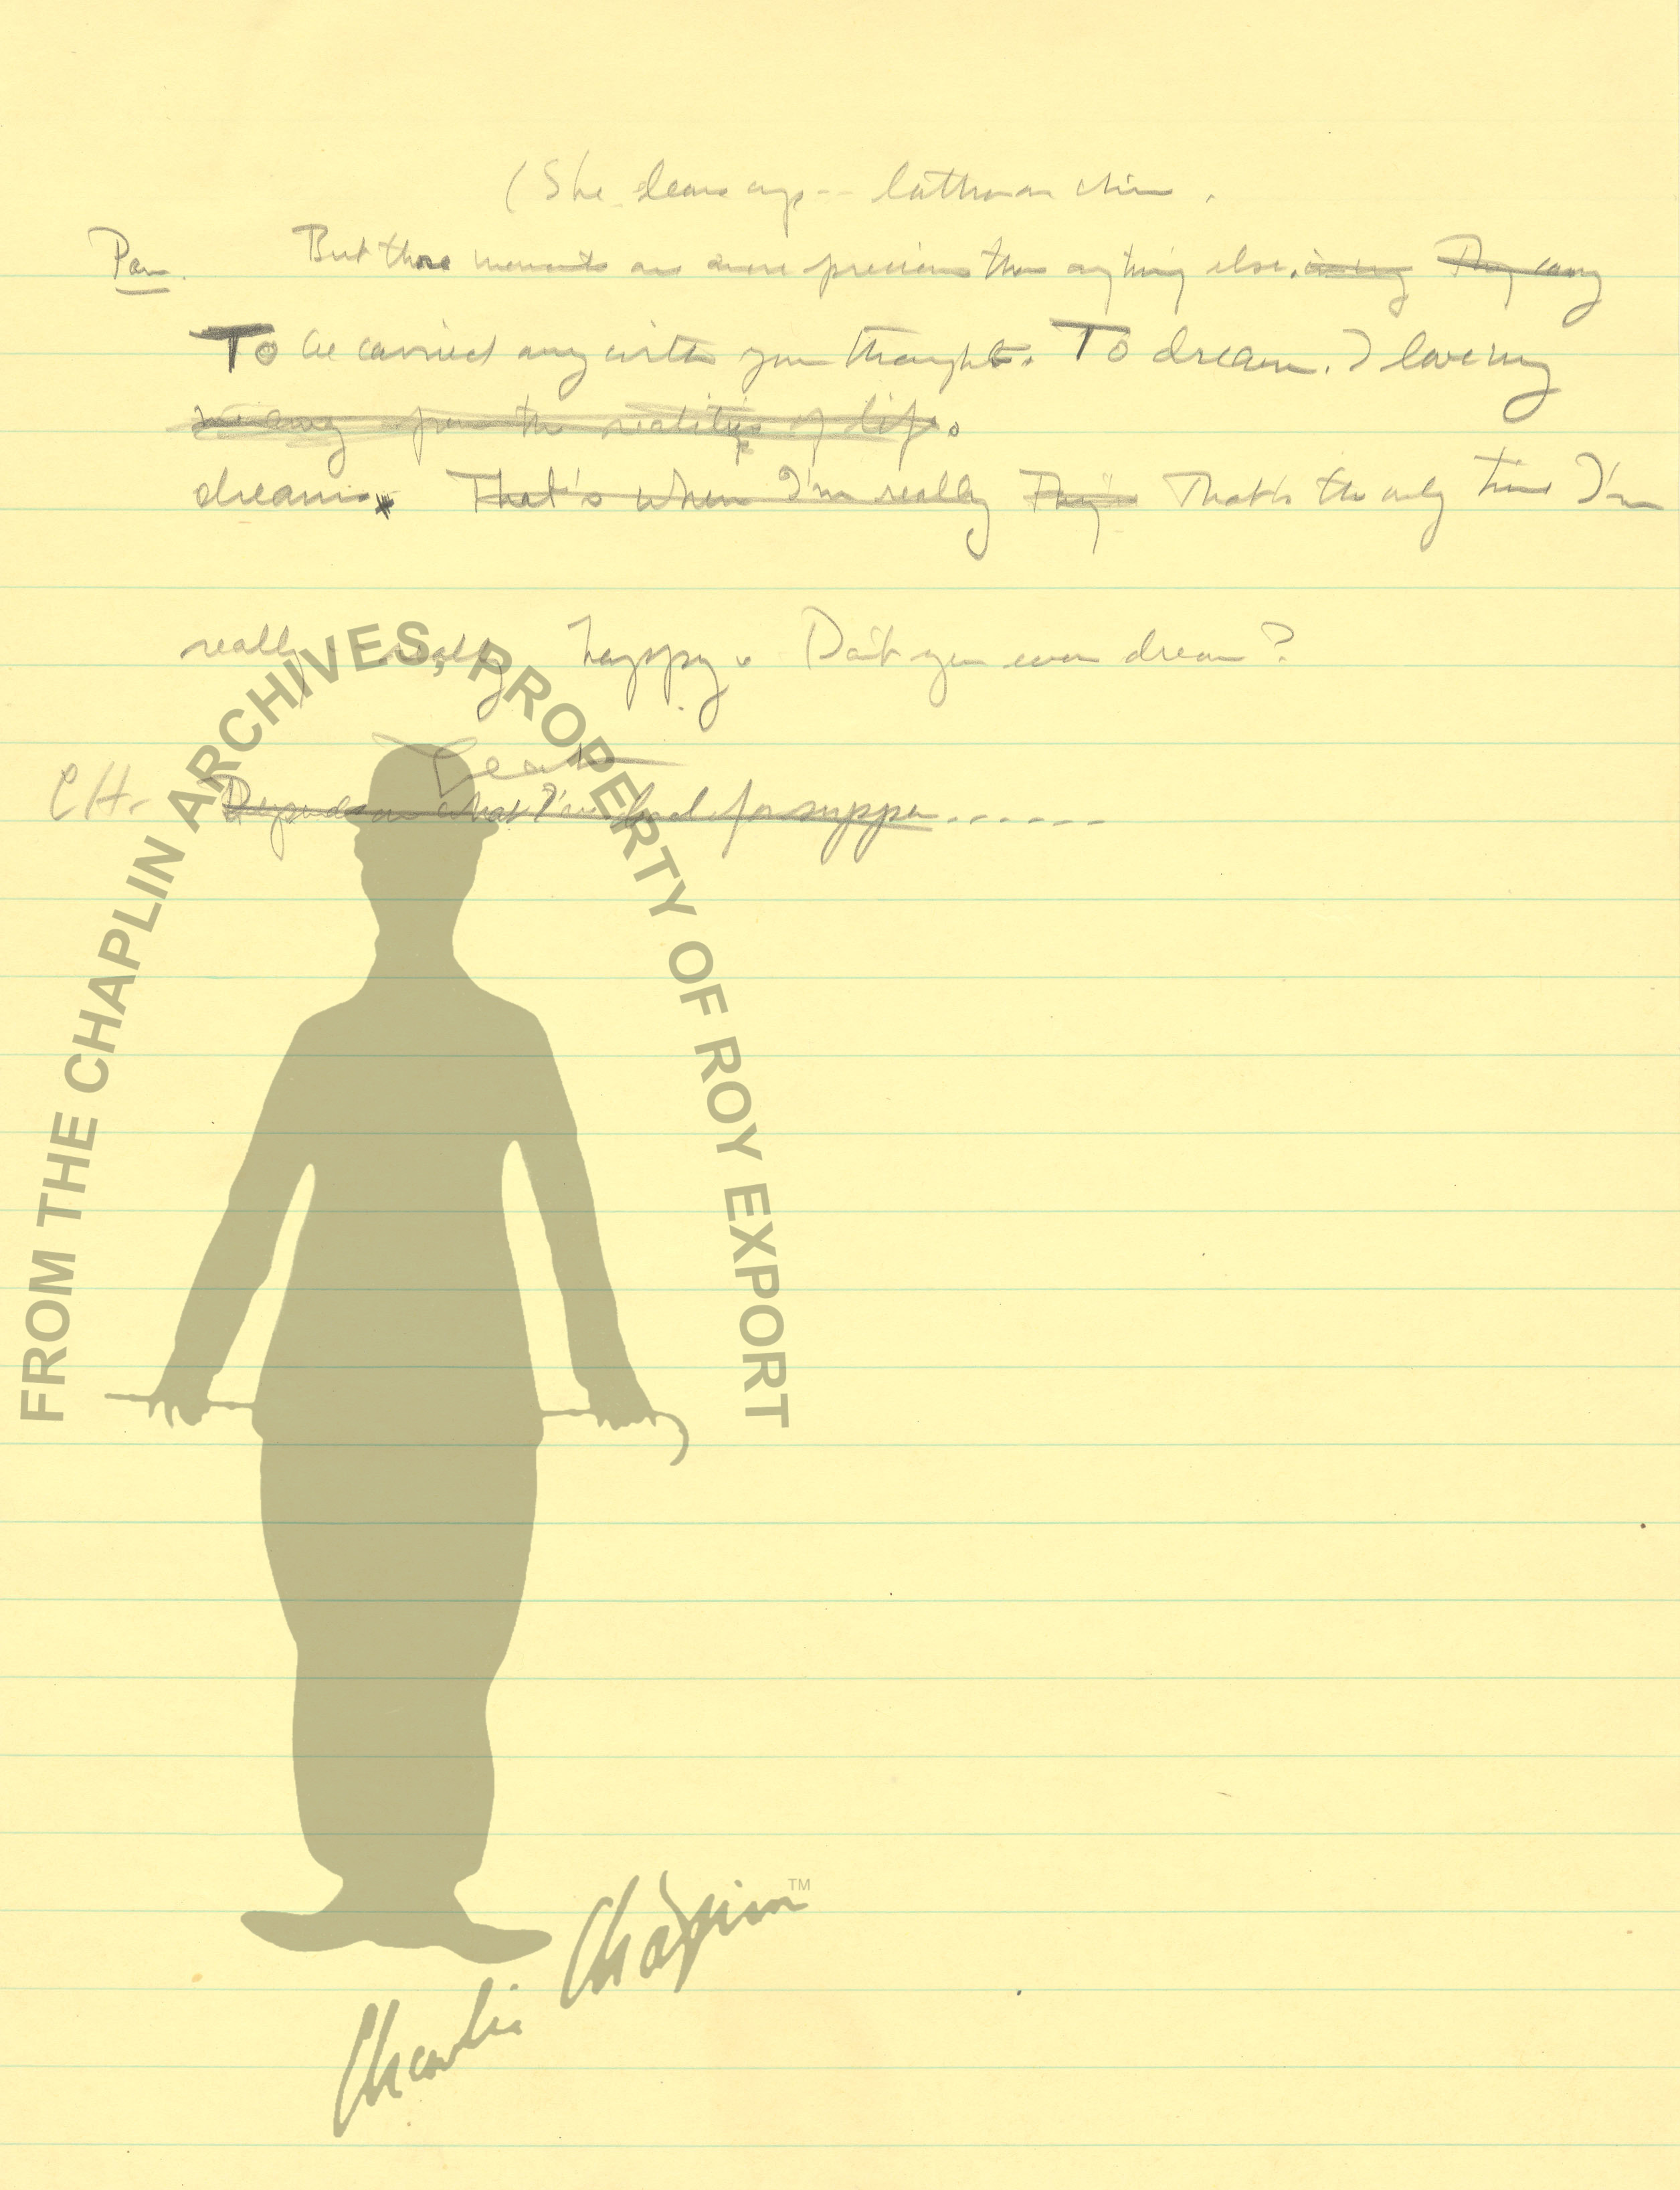 (She leans up -- 
Pau. But those moments are more precious than anything else. They carry
To be carried away with your thoughts. To dream. I love my
away from the realities of life.
dreams. That's when I'm really They're That's the only time I'm
really really happy. Don't you ever dream?
CH. Depends on what I've had for supper......
FROM THE CHAPLIN ARCHIVES, PROPERTY OF ROY EXPORT
Charlie Chaplin™